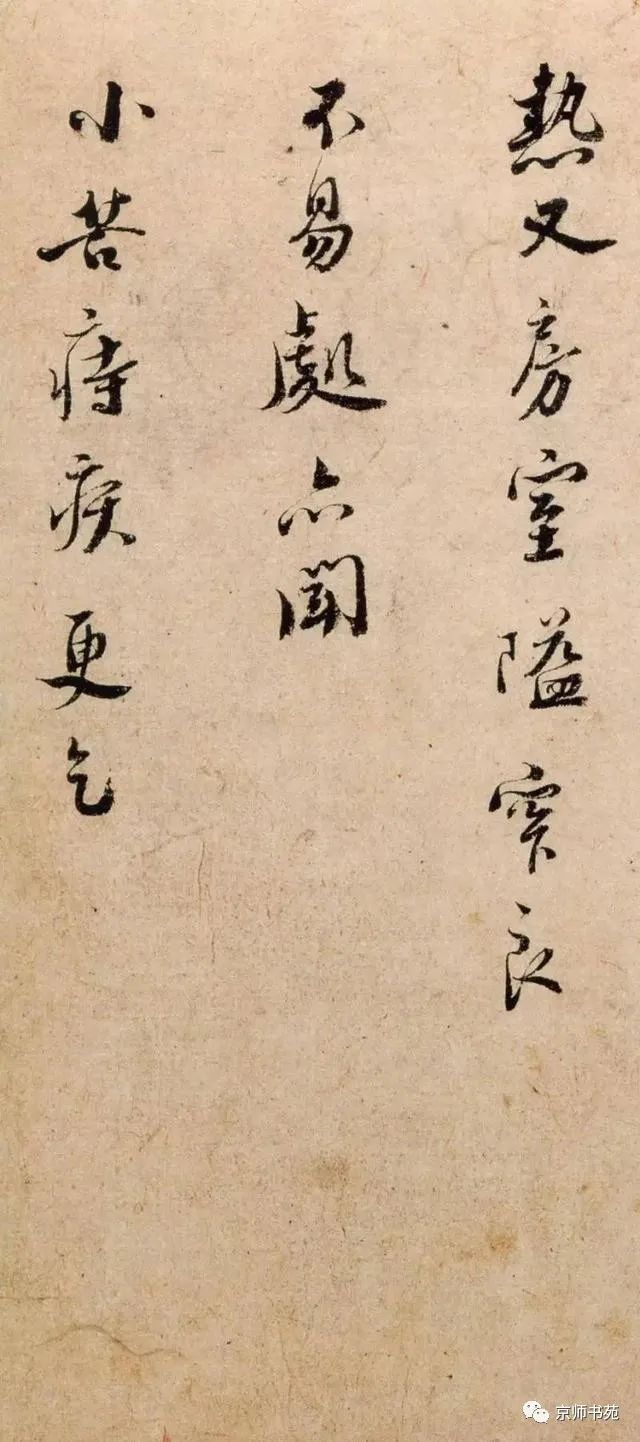 熱又房室隘窄良
不易處亦聞
小苦痔疾更乞
京师书苑